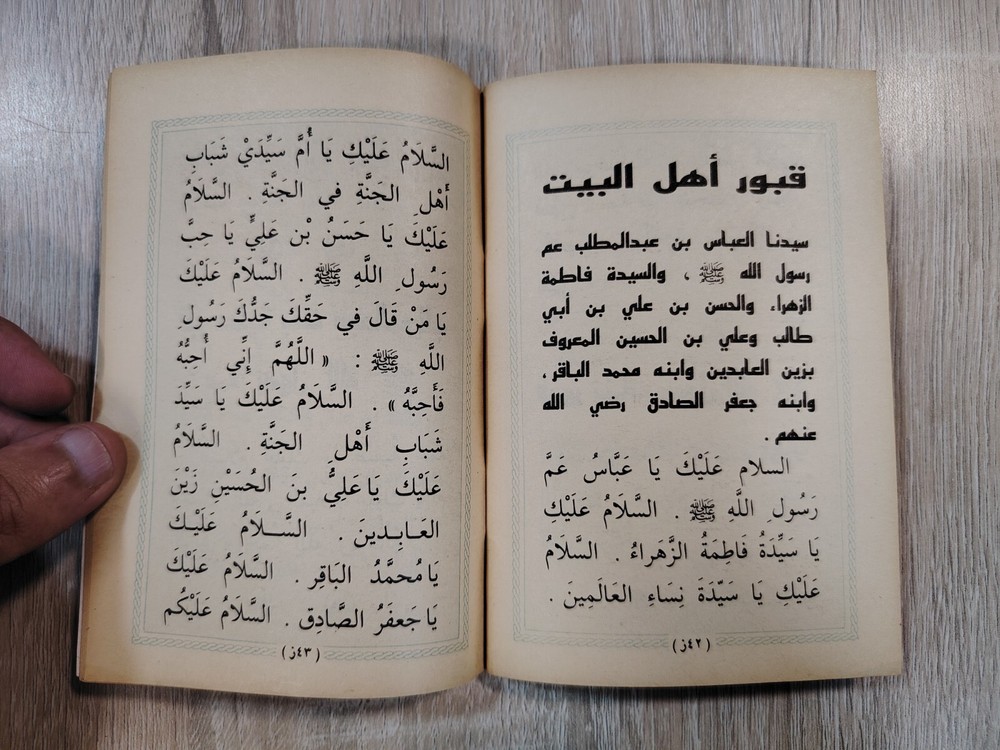 قبور أهل البيت
سيدنا العباس بن عبدالمطلب عم
رسول الله ﷺ ، والسيدة فاطمة
الزهراء والحسن بن علي بن أبي
طالب وعلي بن الحسين المعروف
بزين العابدين وابنه محمد الباقر ،
وابنه جعفر الصادق رضي الله
عنهم .
السلام عَلَيْكَ يَا عَبَّاسُ عَمَّ
رَسُولِ اللَّهِ ﷺ . السَّلَامُ عَلَيْكِ
يَا سَيِّدَةُ فَاطِمَةُ الزَّهراءُ . السَّلَامُ
عَلَيْكِ يَا سَيِّدَةَ نِسَاءِ العَالَمِينَ .
( ٤٢ز )
السَّلَامُ عَلَيْكِ يَا أُمَّ سَيِّدَيْ شَبَابِ
أَهْلِ الجَنَّةِ في الجَنَّةِ . السَّلَامُ
عَلَيْكَ يَا حَسَنُ بْن عَلِيٍّ يَا حِبَّ
رَسُولِ اللَّهِ ﷺ . السَّلَامُ عَلَيْكَ
يَا مَنْ قَالَ في حَقِّكَ جَدُّكَ رَسُولِ
اللَّهِ ﷺ : « اللَّهُمَّ إِنِّي أُحِبُّهُ
فَأَحِبَّهُ » . السَّلَامُ عَلَيْكَ يَا سَيِّدَ
شَبَابِ أَهْلِ الجَنَّةِ . السَّلَامُ
عَلَيْكَ يَا عَلِيُّ بنَ الحُسَيْنِ زَيْنَ
العَابِدينَ . السَّلَامُ عَلَيْكَ
يَا مُحمَّدُ البَاقِر . السَّلَامُ عَلَيْكَ
يَا جَعفَرُ الصَّادِق . السَّلَامُ عَلَيْكُم
( ٤٣ز )